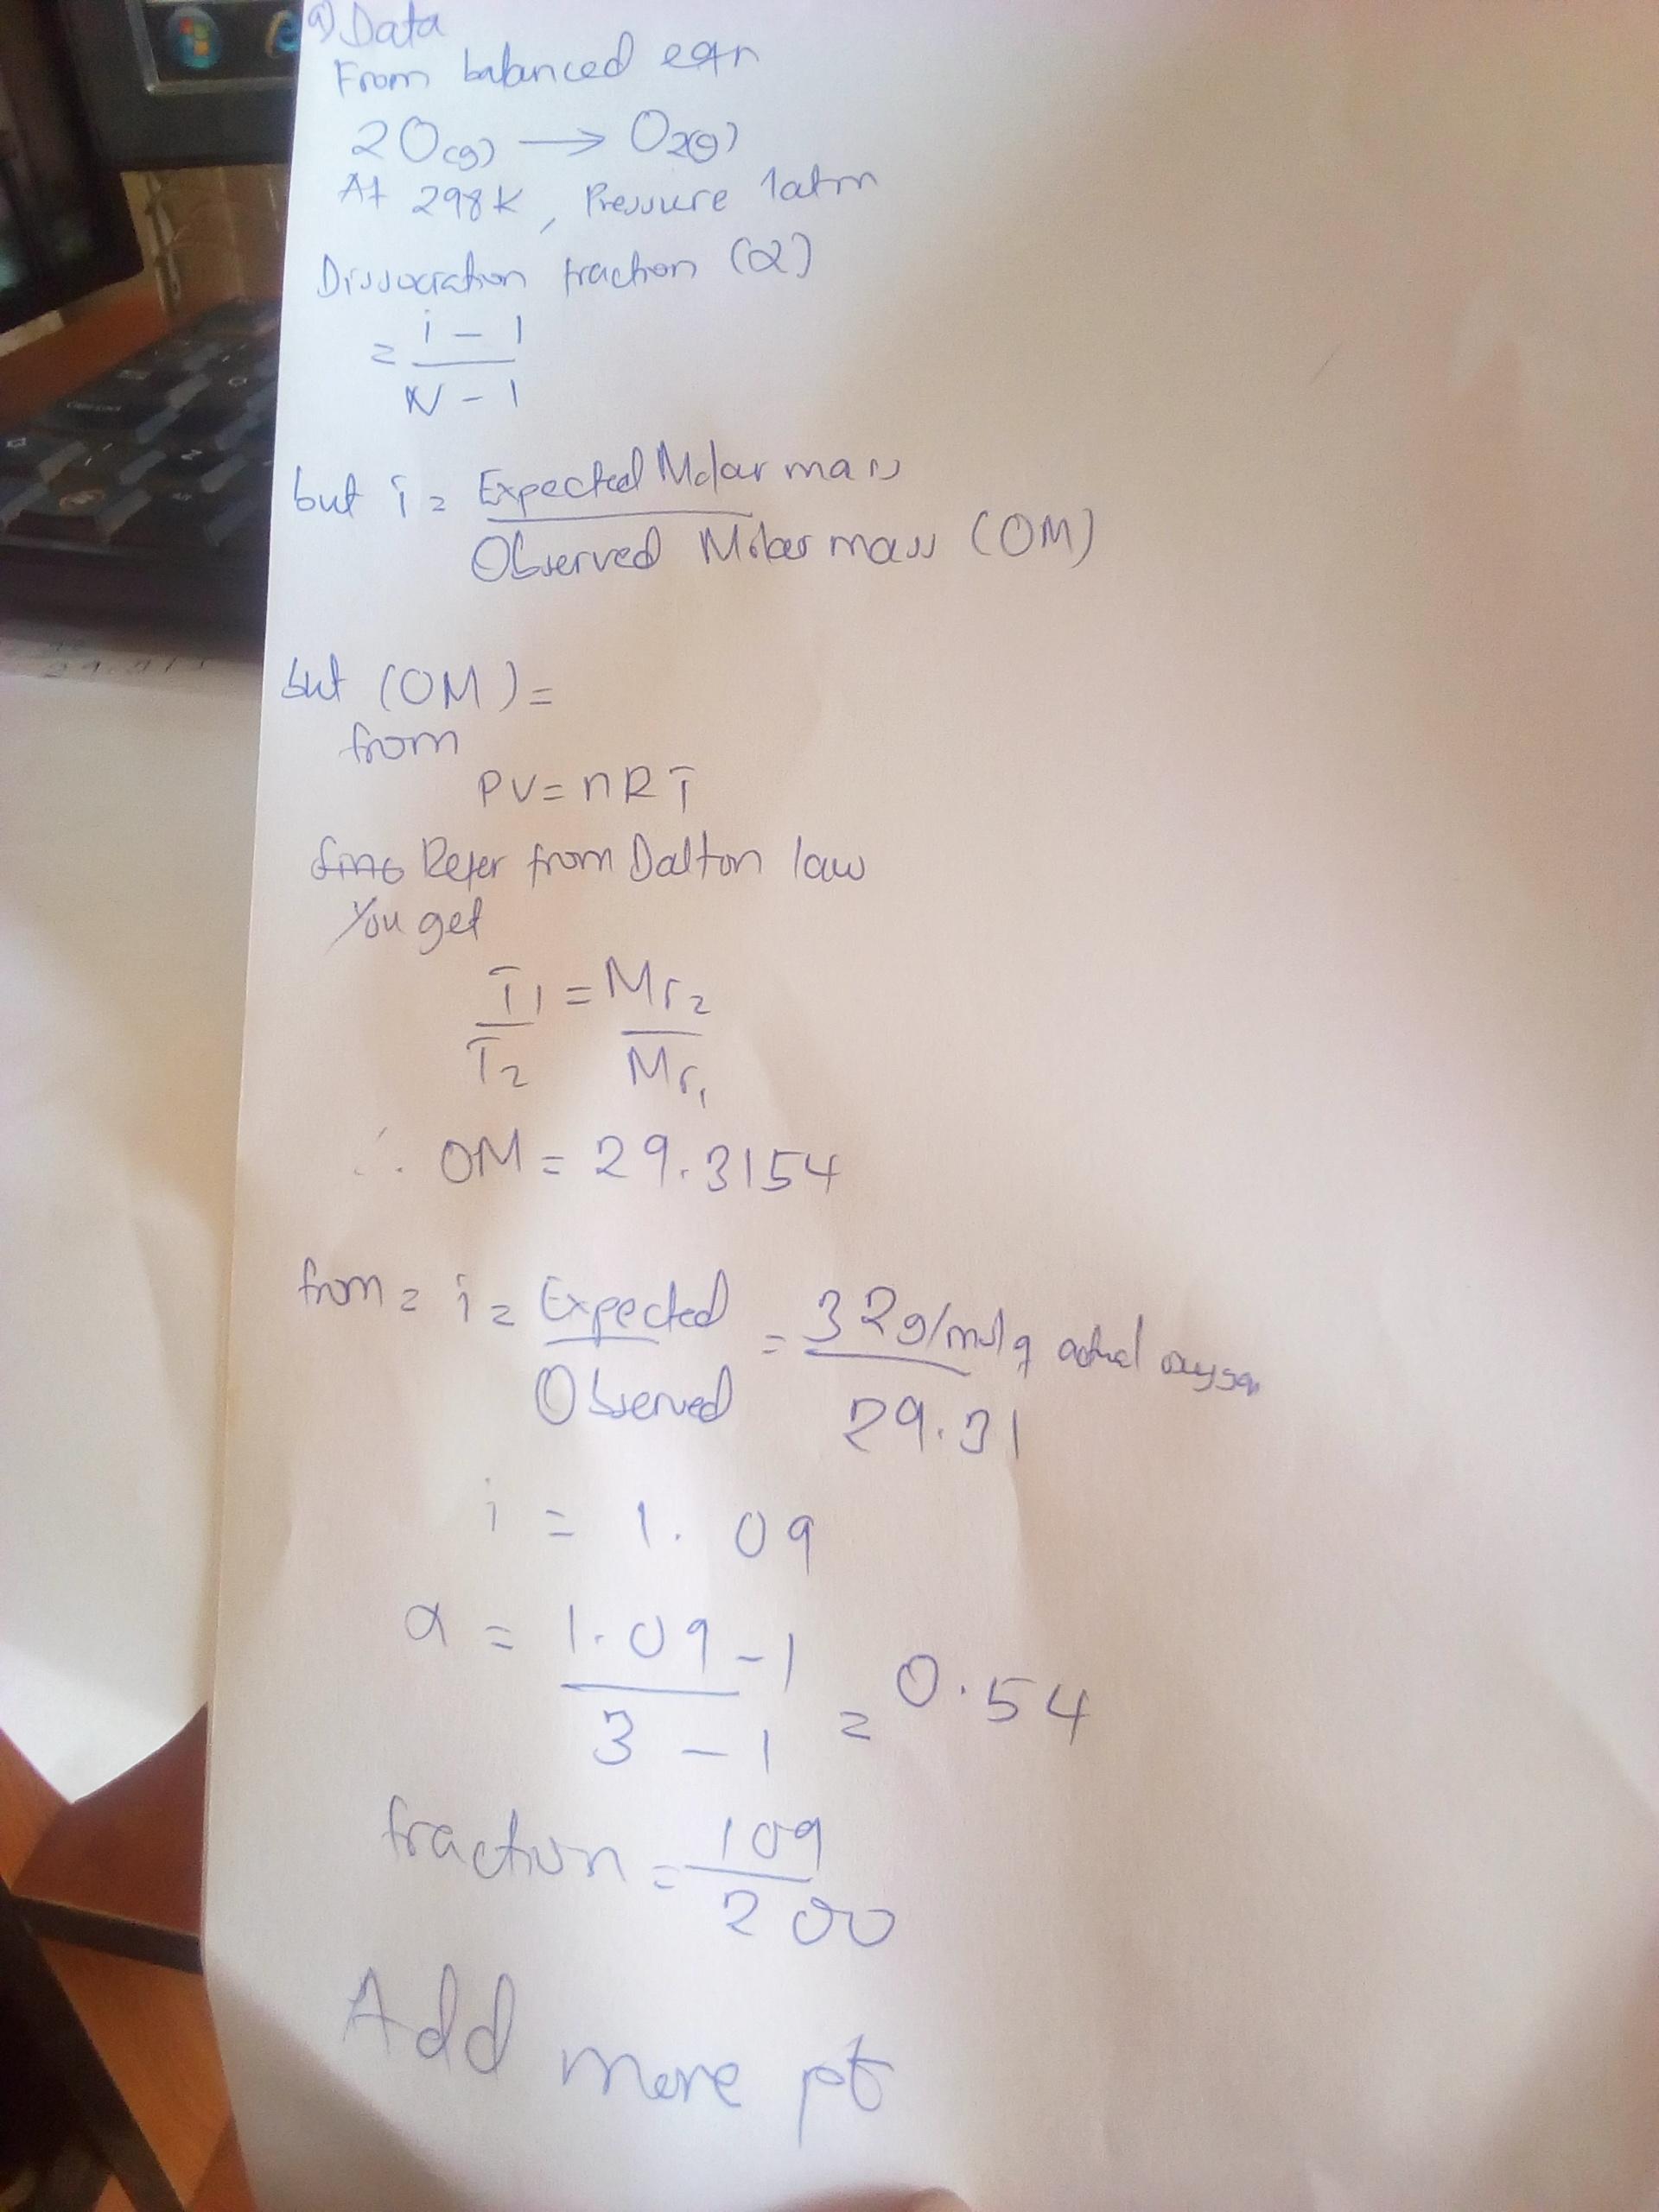 a) Data
From balanced eqn
2O(g) → O2(g)
At 298K, Pressure 1atm
Dissociation fraction (α)
= i - 1
N - 1
but i = Expected Molar mass
Observed Molar mass (OM)
but (OM) =
from
PV = nRT
Refer from Dalton law
You get
T1 = Mr2
T2 Mr1
∴ OM = 29.3154
from = i = Expected = 32g/mol of actual oxygen
Observed 29.31
i = 1.09
α = 1.09 - 1
3 - 1 = 0.54
fraction = 109
200
Add more pt